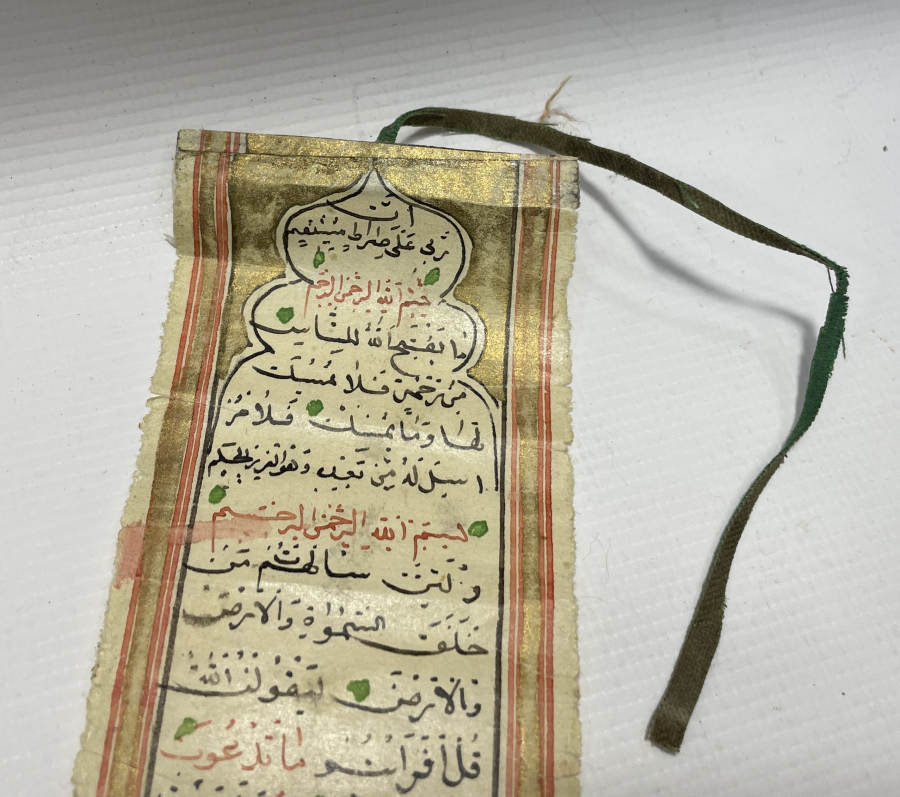 ان
ربى على صراط مستقيم
بسم الله الرحمن الرحيم
ما يفتح الله للناس
من رحمة فلا ممسك
لها وما يمسك فلا مر
سل له من بعده وهو العزيز الحكيم
بسم الله الرحمن الرحيم
ولئن سالتهم من
خلق السموات والارض
والارض ليقولن الله
قل افرايتم ما تدعون